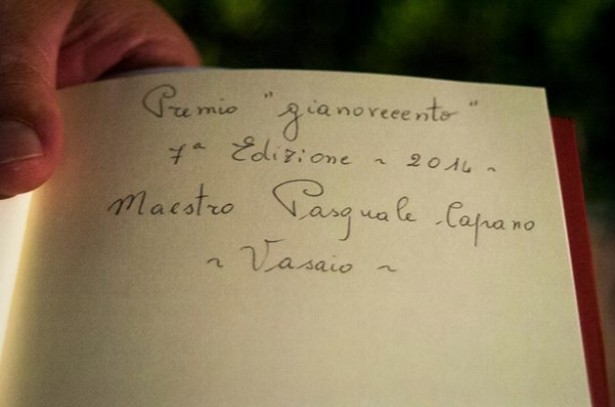 Premio "gianovecento"
7ª Edizione ~ 2014 ~
Maestro Pasquale Capano
~ Vasaio ~